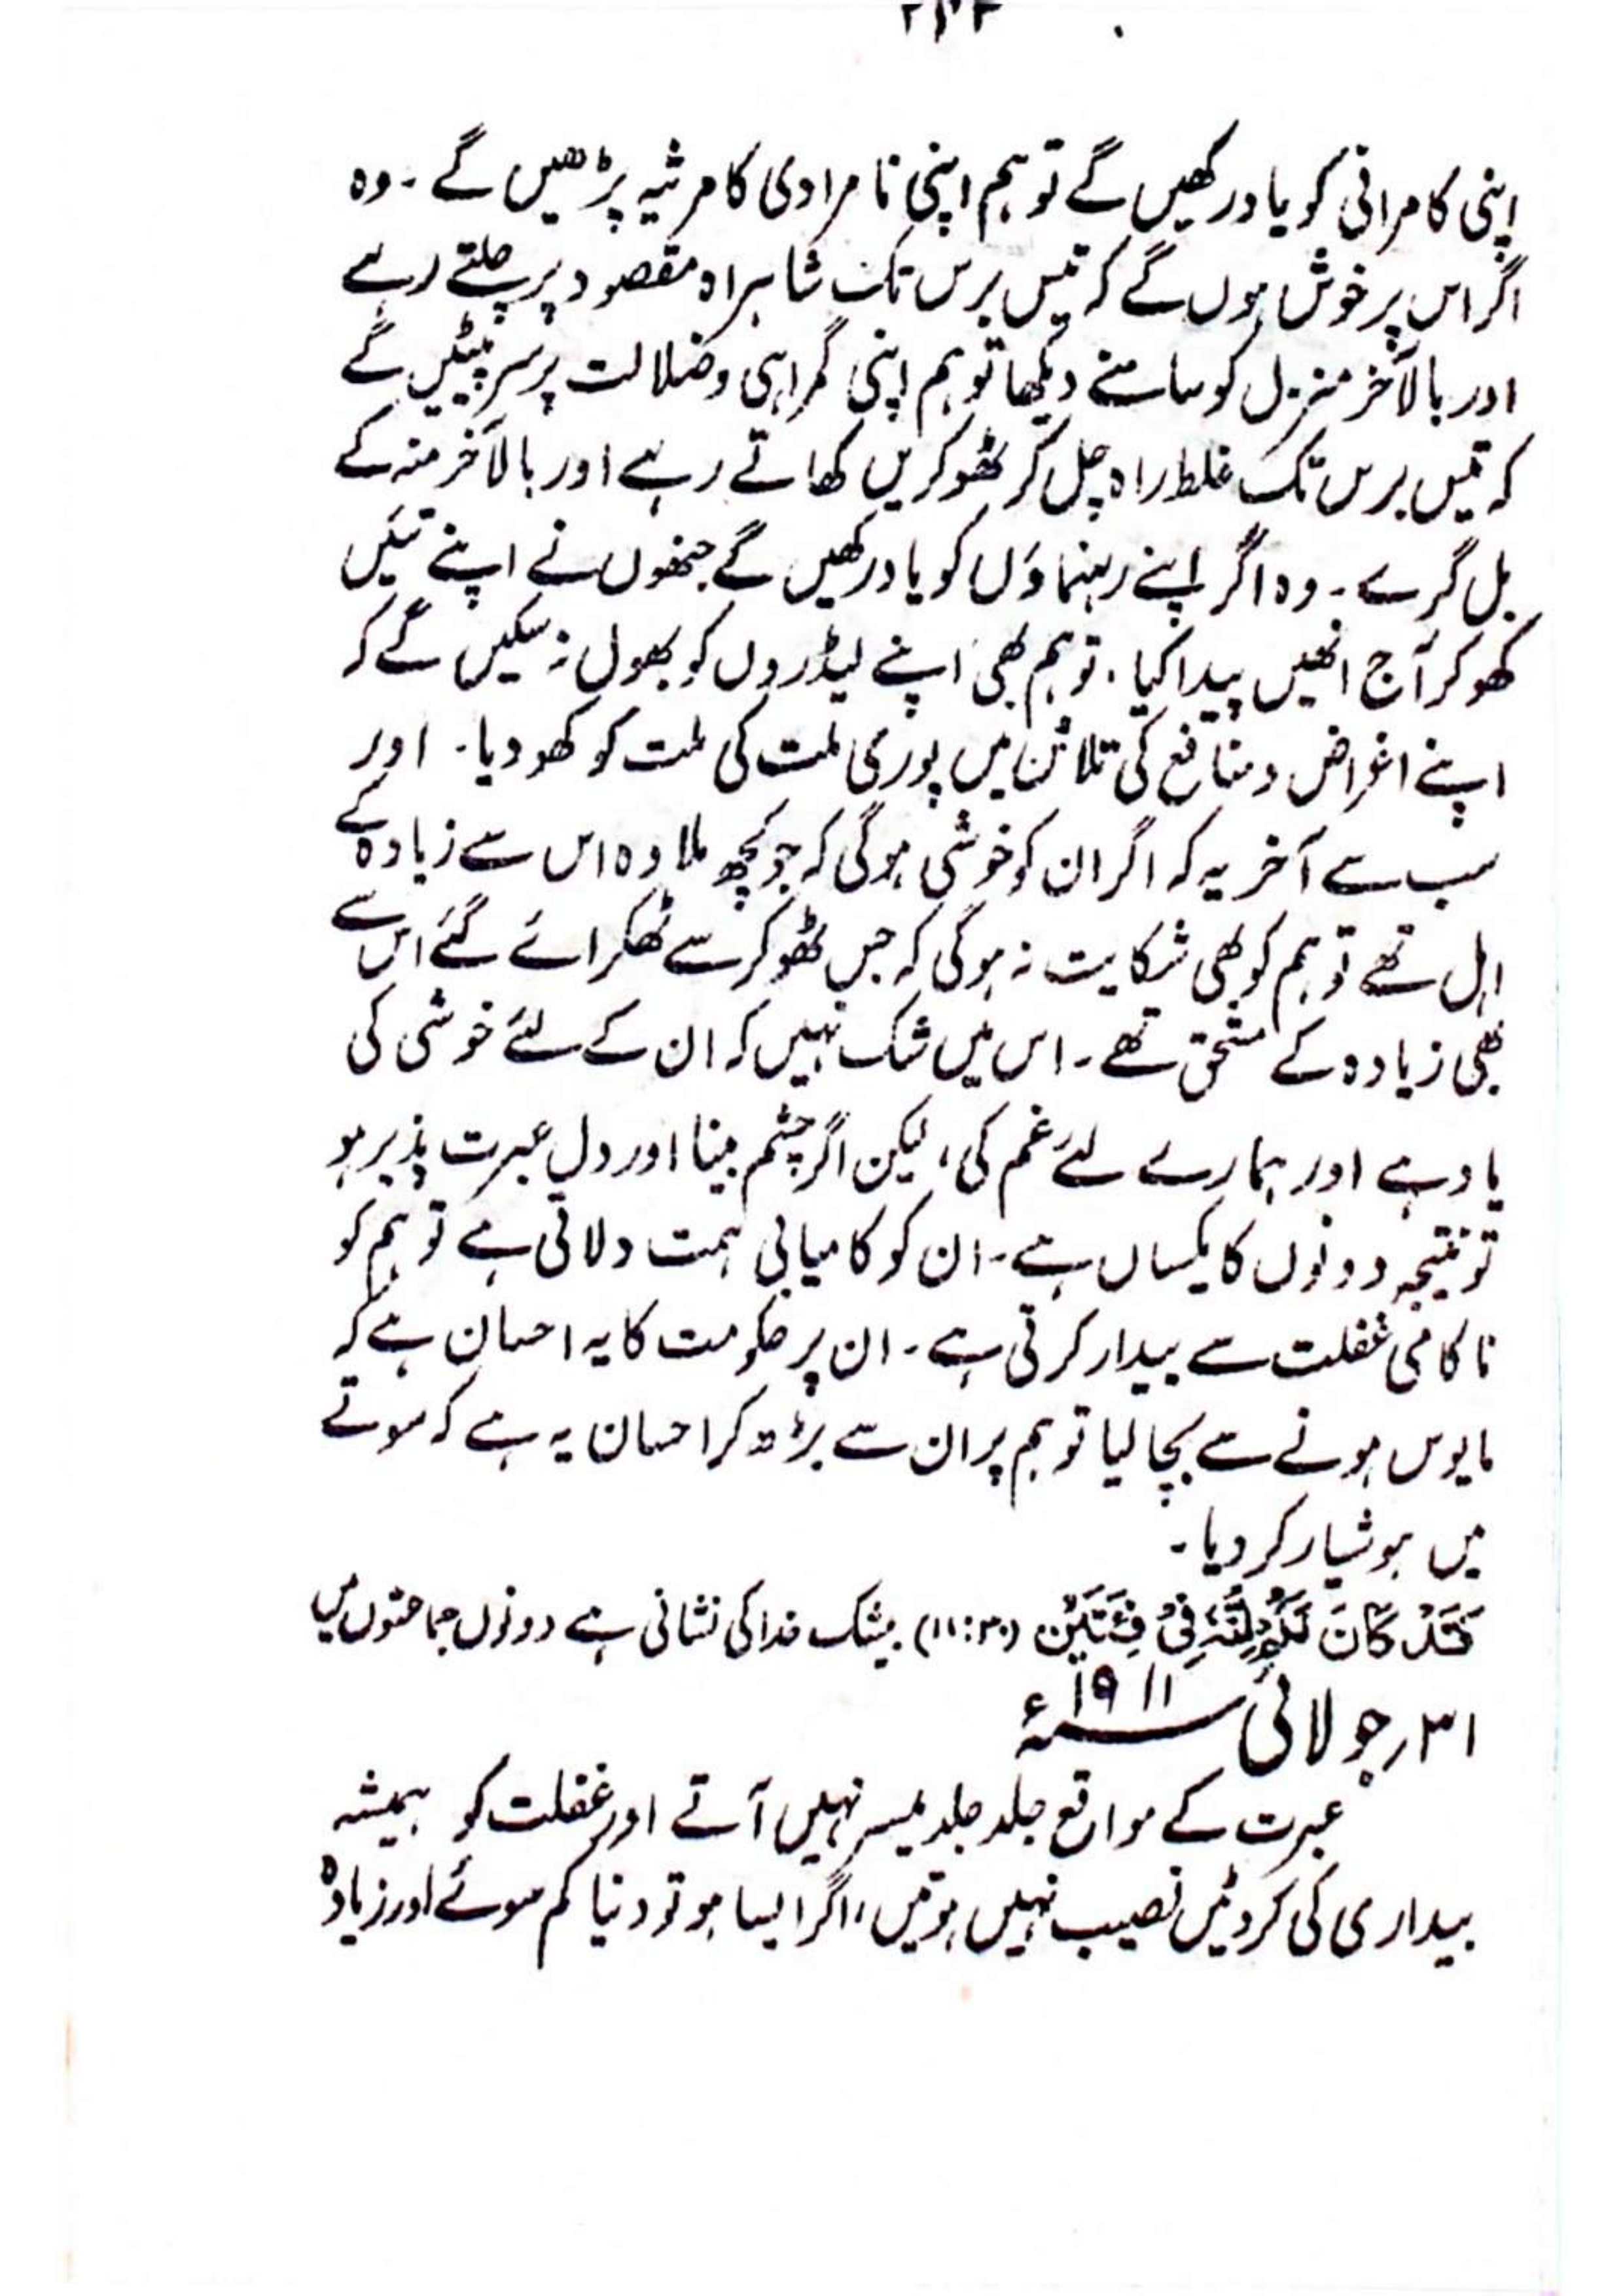 اپنی کامرانی کو یاد رکھیں گے تو ہم اپنی نامرادی کا مرثیہ پڑھیں گے ۔ وہ
اگر اس پر خوش ہوں گے کہ تیس برس تک شاہراہ مقصود پر چلتے رہے
اور بالآخر منزل کو سامنے دیکھا تو ہم اپنی گمراہی و ضلالت پر سر پیٹیں گے
کہ تیس برس تک غلط راہ چل کر ٹھوکریں کھاتے رہے اور بالآخر منہ کے
بل گرے ۔ وہ اگر اپنے رہنماؤں کو یاد رکھیں گے جنھوں نے اپنے تئیں
کھو کر آج انھیں پیدا کیا ۔ تو ہم بھی اپنے لیڈروں کو بھول نہ سکیں گے کہ
اپنے اغراض و منافع کی تلاش میں پوری ملت کی ملت کو کھو دیا ۔ اور
سب سے آخر یہ کہ اگر ان کو خوشی ہوگی کہ جو کچھ ملا وہ اس سے زیادہ کے
اہل تھے تو ہم کو بھی شکایت نہ ہوگی کہ جس ٹھوکر سے ٹھکرائے گئے اس سے
بھی زیادہ کے مستحق تھے ۔ اس میں شک نہیں کہ ان کے لئے خوشی کی
یاد ہے اور ہمارے لئے غم کی، لیکن اگر چشم بینا اور دل عبرت پذیر ہو
تو نتیجہ دونوں کا یکساں ہے ۔ ان کو کامیابی ہمت دلاتی ہے تو ہم کو
ناکامی غفلت سے بیدار کرتی ہے ۔ ان پر حکومت کا یہ احسان ہے کہ
مایوس ہونے سے بچا لیا تو ہم پر ان سے بڑھ کر احسان یہ ہے کہ سوتے
میں ہوشیار کر دیا ۔
قَدْ كَانَ فِيْ فِئَتَيْنِ (۱۱:۳۰) بیشک خدا کی نشانی ہے دونوں جماعتوں میں
۳۱؍ جولائی ۱۹۱۱ء
عبرت کے مواقع جلد جلد میسر نہیں آتے اور غفلت کو ہمیشہ
بیداری کی کروٹیں نصیب نہیں ہوتیں، اگر ایسا ہو تو دنیا کم سوئے اور زیادہ